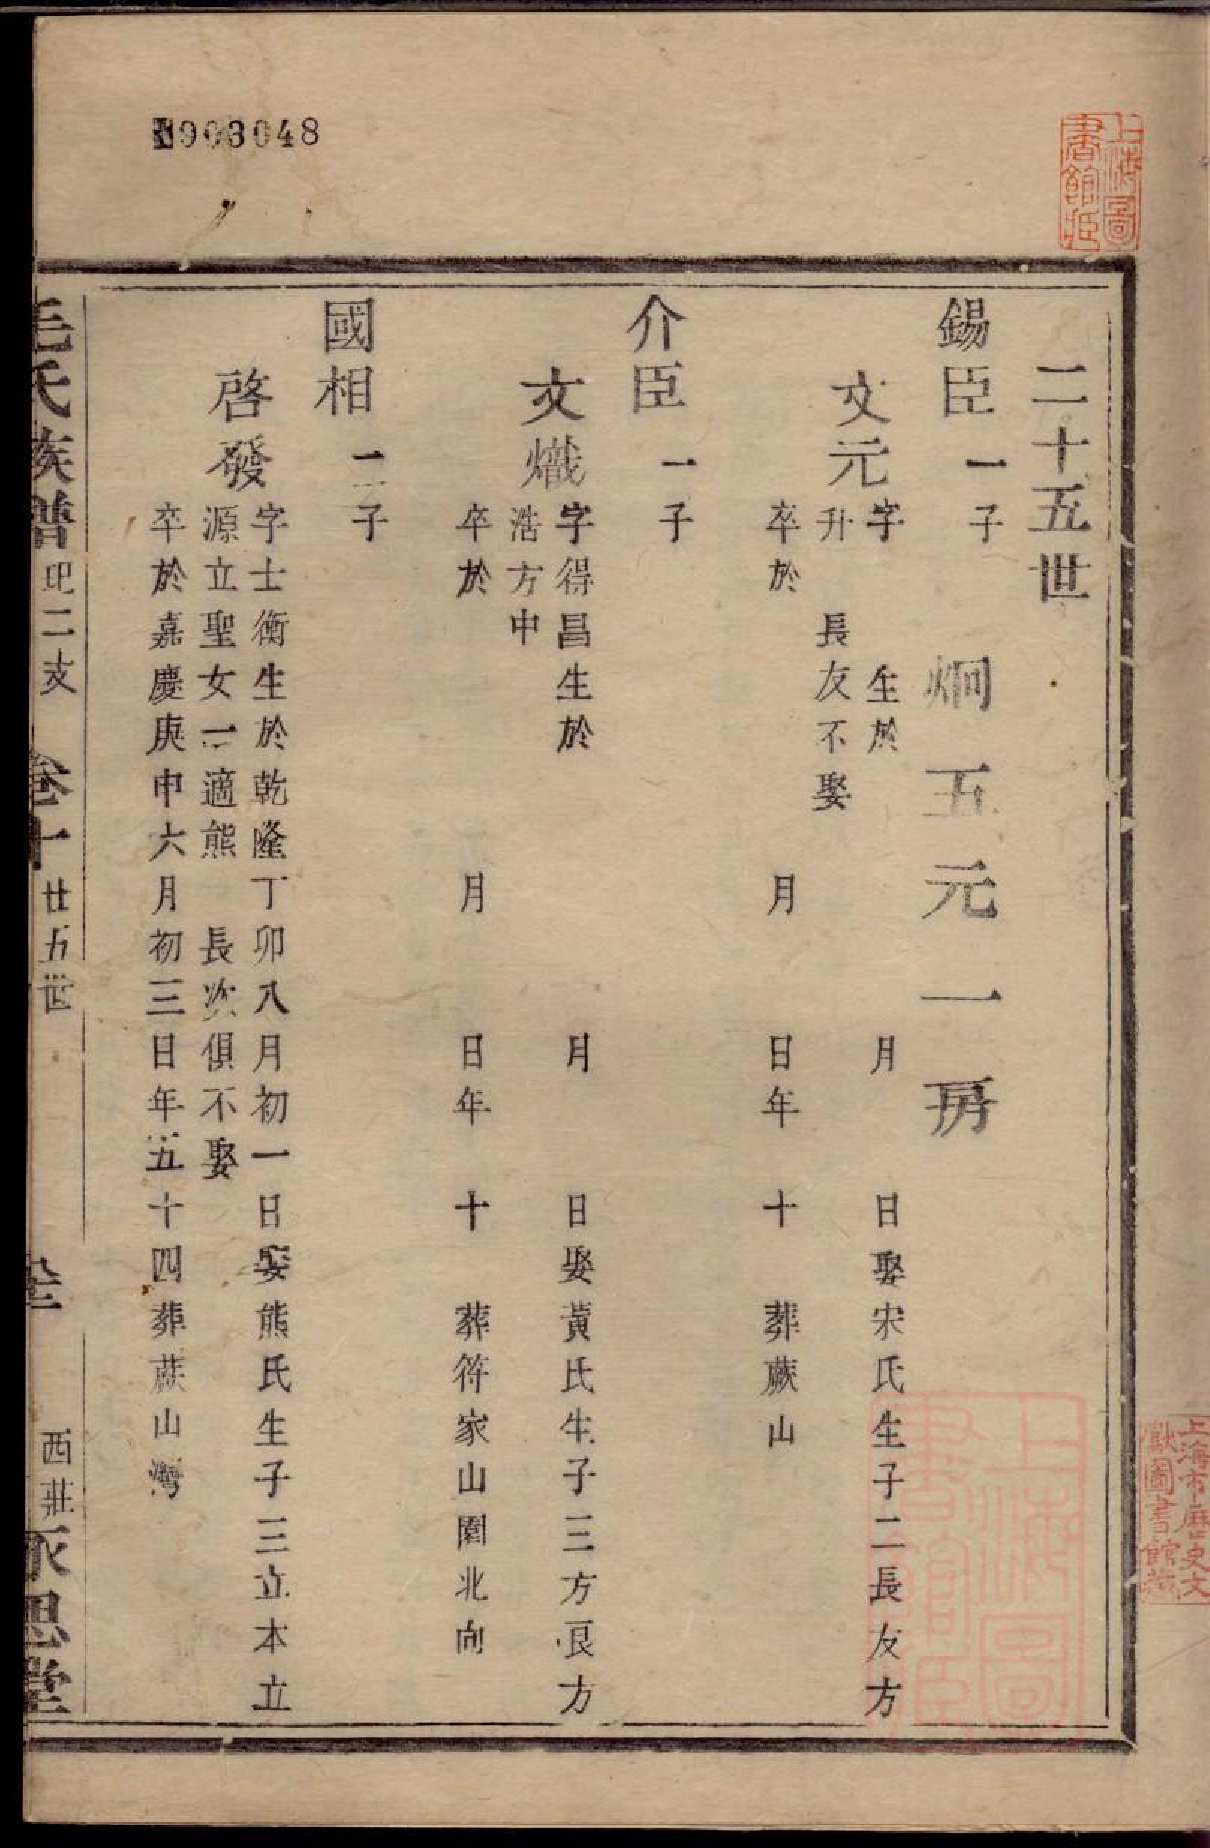 903048
上海圖書館藏
二十五世
錫臣 一子 炯五元一房
文元 字 生於 月 日娶宋氏生子二長友方
升 長友不娶
卒於 月 日年 十 葬蕨山
介臣 一子
文熾 字得昌生於 月 日娶黃氏生子三方良方
浩方中
卒於 月 日年 十 葬符家山園北向
國相 一子
啓發 字士衡生於乾隆丁卯八月初一日娶熊氏生子三立本立
源立聖女一適熊 長次俱不娶
卒於嘉慶庚申六月初三日年五十四葬蕨山灣
毛氏族譜 卷十 廿五世 西莊 永思堂
上海圖書館藏
上海市歷史文獻圖書館藏